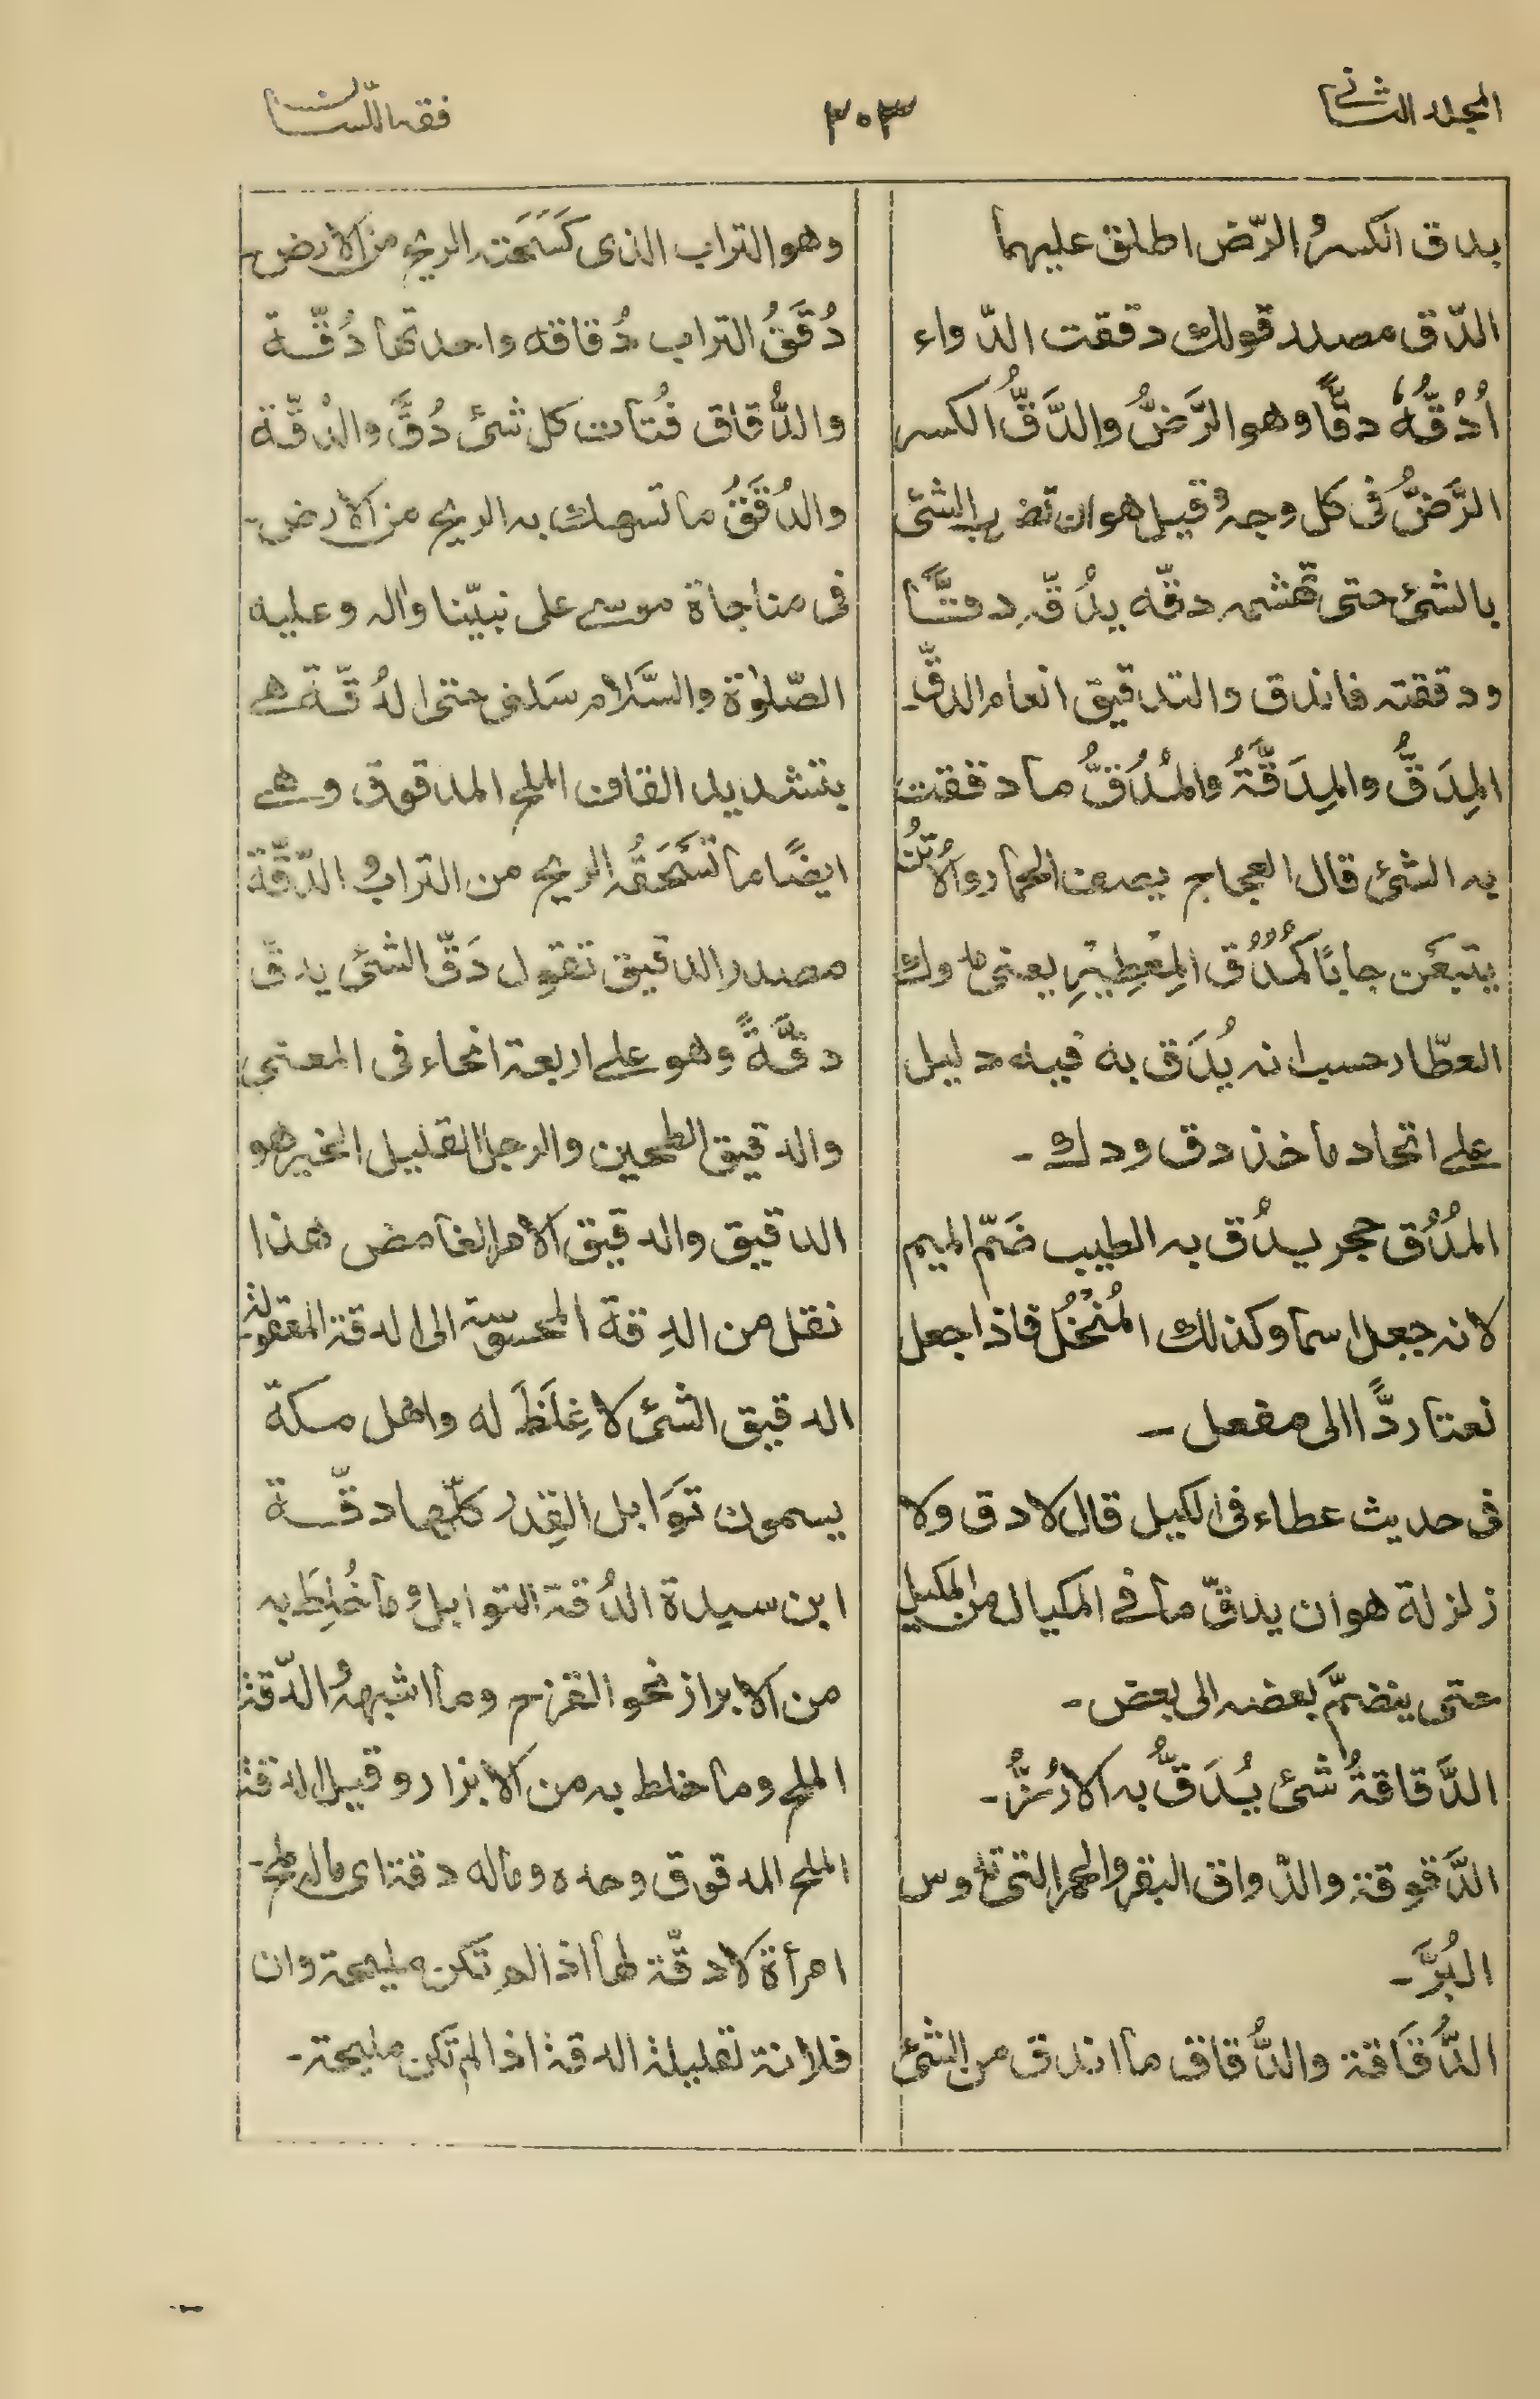 المجلد الثانی
٣٠٣
فقه اللّسان
بدق الکسرُ الرّض اطلق علیهما
الدّق مصدر قولك دققت الدّواء
اَدُقُّهُ دقًّا وهو الرَّضُّ والدَّقُّ الکسر
الرَّضُّ فی کل وجهٍ وقیل هو ان تضرب الشئ
بالشئ حتی تهشمه دقّه یدُقّه دقًّا
ودققته فاندق والتدقیق انعام الدقّ-
المِدَقُّ والمِدَقَّةُ والمُدُقُّ ما دققت
به الشئ قال العجاج یصف الحمار والاُتُن
یتبعَن جابًا کَمُدُقِّ المِعْطِیْرِ یعنی مدوك
العطّار حسب انه یُدَق به فیه دلیل
علی اتحاد ماخذ دق ودك -
المُدُق حجر یدُق به الطیب ضَمّ المیم
لانه جعل اسما وکذلك المُنْخُل فاذا جعل
نعتا ردًّا الی مفعل -
فی حدیث عطاء فی الکیل قال لا دق ولا
زلزلة هو ان یدقّ ما فی المکیال من المکیل
حتی ینضمَّ بعضه الی بعض -
الدَّقاقةُ شئ یُدَقُّ به الارُزُّ-
الدَّقوقة والدّواق البقر والحمر التی تدوس
البُرَّ-
الدُّقَاقة والدُّقاق ما اندق من الشئ
وهو التراب الذی کَسَحَته الریح من الارض-
دُقَقُ التراب دُقاقه واحدتها دُقّة
والدُّقاق فُتات کل شئ دُقَّ والدُقّة
والدُقَقُ ما تسهك به الریح من الارض-
فی مناجاة موسی علی نبیّنا واٰله وعلیه
الصّلوٰة والسَّلام سَلنی حتی الدُقّة هی
بتشدید القاف الملح المدقوق وهی
ایضًا ما تسَحَقُه الریح من التراب والدّقّة
مصدر الدقیق تقول دَقّ الشئ یدقّ
دقّةً وهو علی اربعة انحاء فی المعنی
والدقیق الطحین والرجل القلیل الخیر هو
الدقیق والدقیق الامر الغامض هذا
نقل من الدِقة المحسوسة الی الدقة المعقولة
الدقیق الشئ لا غِلَظَ له واهل مکة
یسمون تَوَابل القِدْر کلّها دقّة
ابن سیدة الدُقة التوابل وما خُلِطَ به
من الابزار نحو القزح وما اشبهه والدّقة
الملح وما خلط به من الابزار وقیل الدقة
الملح المدقوق وحده وماله دقة ای ماله ملح-
امرأة لا دقّة لها اذا لم تکن ملیحة وان
فلانة لقلیلة الدقة اذا لم تکن ملیحة-